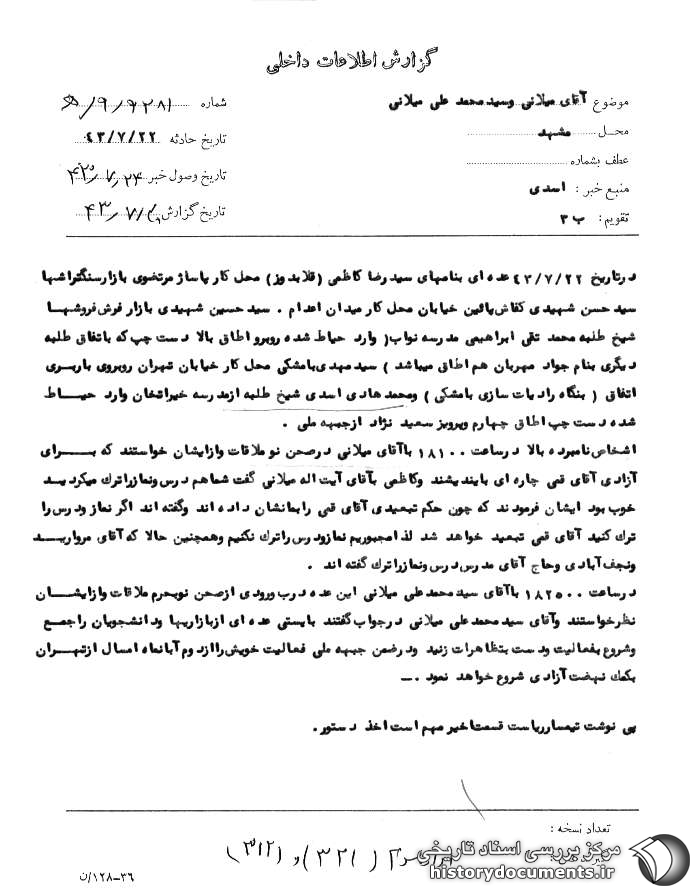 گزارش اطلاعات داخلی
موضوع آقای میلانی وسید محمد علی میلانی
شماره ۹/۹۲۸۱/ﻫ
محل مشهد
تاریخ حادثه ۴۳/۷/۲۲
عطف بشماره
تاریخ وصول خبر ۴۳/۷/۲۴
منبع خبر : اسدی
تاریخ گزارش ۴۳/۷/
تقویم : ب ۳
درتاریخ ۴۳/۷/۲۲ عده ای بنامهای سید رضا کاظمی (قلابدوز) محل کار پاساژ مرتضوی بازار سنگتراشها
سید حسن شهیدی کفاش پائین خیابان محل کار میدان اعدام . سید حسین شهیدی بازار فرش فروشها
شیخ طلبه محمد تقی ابراهیمی مدرسه نواب( وارد حیاط شده روبرو اطاق بالا دست چپ که باتفاق طلبه
دیگری بنام جواد مهربان هم اطاق میباشد ) سید مهدی بامشکی محل کار خیابان تهران روبروی باربری
اتفاق ( بنگاه رادیات سازی بامشکی ) ومحمد هادی اسدی شیخ طلبه ازمدرسه خیراتخان وارد حیاط
شده دست چپ اطاق چهارم وپرویز سعید نژاد ازجبهه ملی .
اشخاص نامبرده بالا درساعت ۱۸۱۰۰ باآقای میلانی درصحن نو ملاقات وازایشان خواستند که برای
آزادی آقای قمی چاره ای بایندیشند وکاظمی بآقای آیت اله میلانی گفت شماهم درس ونمازراترك میکردید
خوب بود ایشان فرمودند که چون حکم تبعیدی آقای قمی رابمانشان داده اند وگفته اند اگر نماز ودرس را
ترك کنید آقای قمی تبعید خواهد شد لذا مجبوریم نمازودرس راترك نکنیم وهمچنین حالا که آقای مروارید
ونجف آبادی وحاج آقای مدرس درس ونمازراترك گفته اند .
درساعت ۱۸۲۵۰۰ باآقای سید محمد علی میلانی این عده درب ورودی ازصحن نوبحرم ملاقات وازایشان
نظرخواستند وآقای سید محمد علی میلانی درجواب گفتند بایستی عده ای ازبازاریها ودانشجویان راجمع
وشروع بفعالیت ودست بتظاهرات زنید ودرضمن جبهه ملی فعالیت خویش راازدوم آبانماه امسال ازتهران
بکمك نهضت آزادی شروع خواهد نمود .ـ
پی نوشت تیمسارریاست قسمت اخیر مهم است اخذ دستور .
تعداد نسخه :
(۳۲۱) و (۳۱۲)
مرکز بررسی اسناد تاریخی
historydocuments.ir
۳۶-۱۲۸/ن